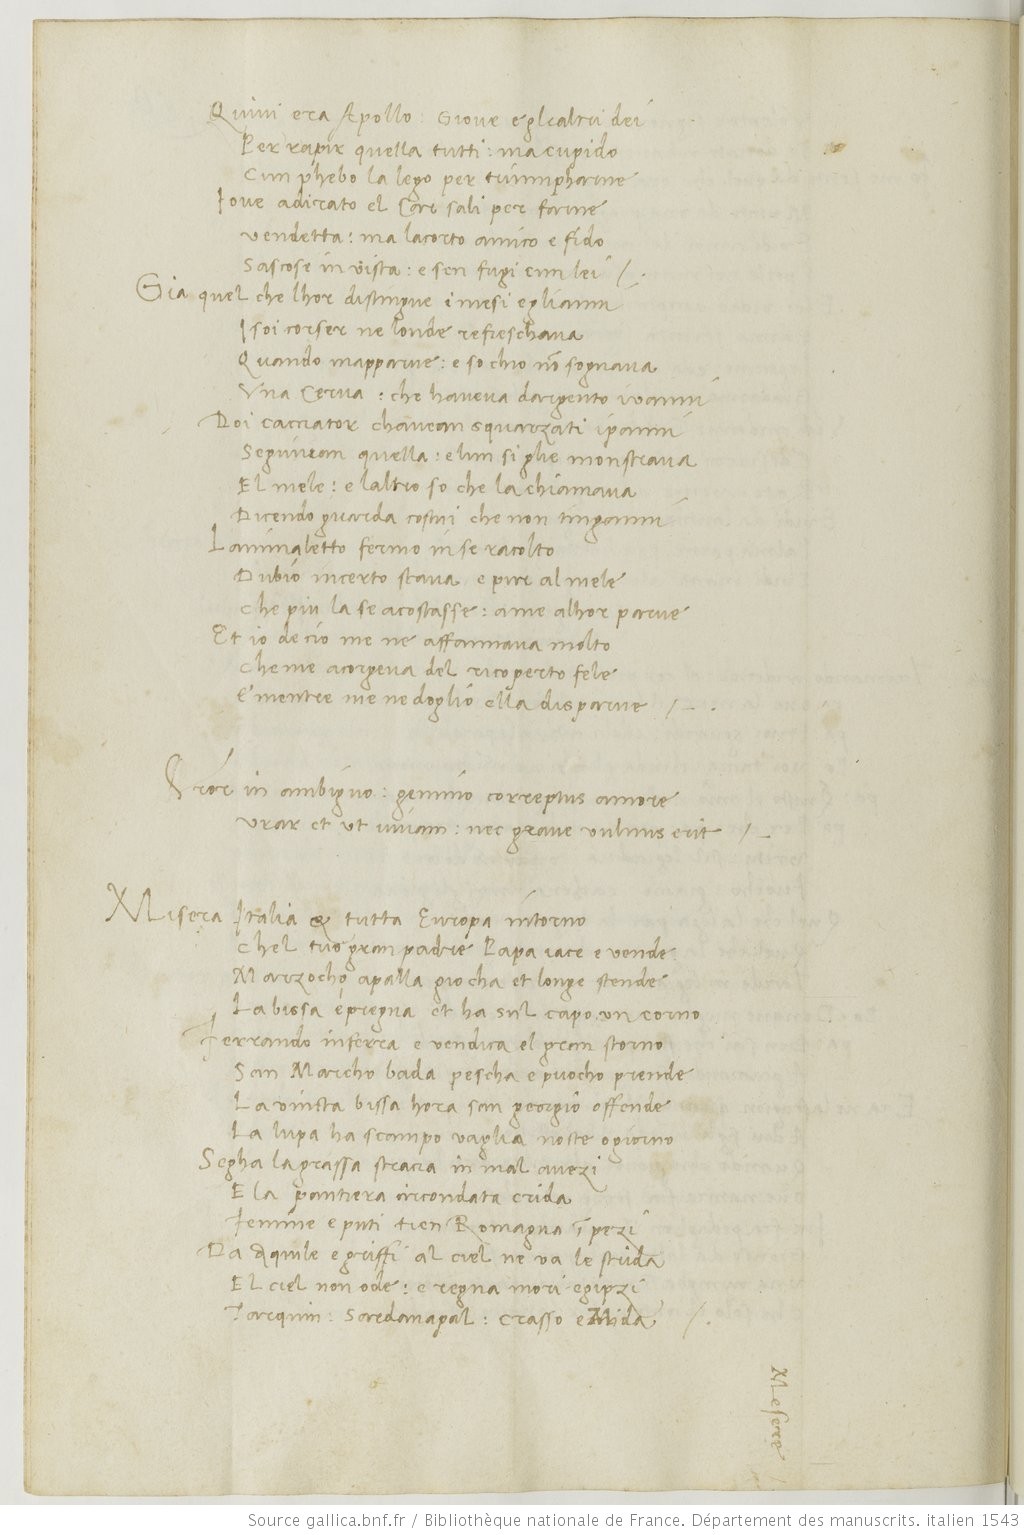 Quivi era Apollo: Giove e gli altri dei
Per rapir quella tutti: ma cupido
Cun phebo la lego per triumpharne
Iove adirato el Carr sali per farne
vendetta: ma lacorto amico e fido
Sascose in vista: e sen fugi cun lei /.
Gia quel che lhor distingue i mesi egli anni
I soi corser ne londe refreschava
Quando mapparve: e so chio nõ sognava
Vna Cerva: che haveva dargento i vanni
Doi cacciator chavean squarzati i panni
Seguivean quella: e lun si glie monstrava
El mele: e laltro so che la chiamava
Dicendo guarda costui che non tinganni
Lanimaletto fermo in se racolto
Dubio incerto stava e pur al mele
che piu la se acostasse: a me alhor parve
Et io de cio me ne affannava molto
che me acorgeva del ricoperto fele
E mentre me ne doglio ella disparve /-.
Error in ambiguo: gemino correptus amore
Vrar et ut vivam: nec grave vulnus erit /-
Misera Italia & tutta Europa intorno
chel tuo gran padre Papa iace e vende
Marzocho a palla giocha et longe stende
La bissa é pregna et ha sul capo un corno
Ferrando inferra e vendica el gran storno
San Marcho bada pescha e puocho prende
La vincta bissa hora san georgio offende
La lupa ha scampo vaglia nocte ogiorno
Segha la grassa stracia in mal avezi
E la pantiera circondata crida
Femine e puti tien Romagna ĩ pezi
Da aquile e griffi al ciel ne va le strida
El ciel non ode: e regna mori egipzi
Tarquin: Sardanapal: Crasso e Mida /.
Meserre
Source gallica.bnf.fr / Bibliothèque nationale de France. Département des manuscrits. italien 1543